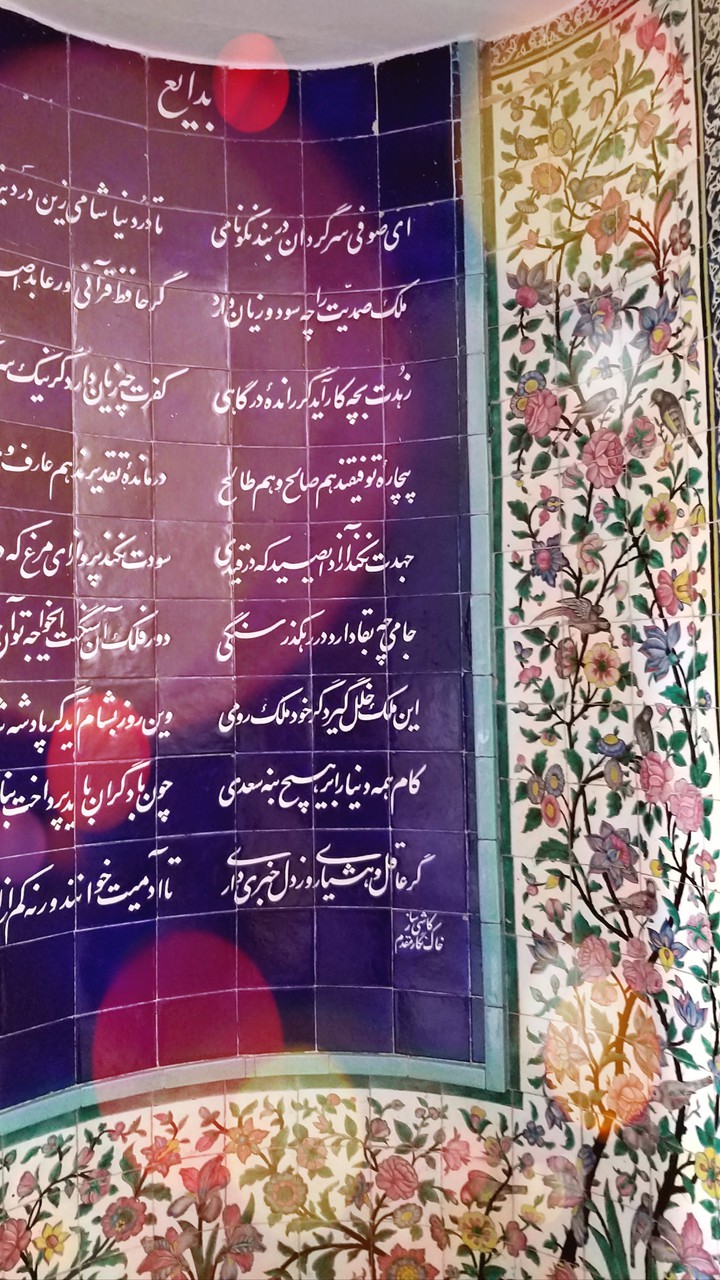 بدایع
ای صوفی سرگردان در بند نکونامی تا درد نیاشامی زین درد
ملک صمدیت را چه سود و زیان دارد گر حافظ قرآنی ور عابد
زهدت بچه کار آید گر راندهٔ درگاهی کفرت چه زیان دارد گر نیک
بیچارهٔ توفیقند هم صالح و هم طالح درماندهٔ تقدیرند هم عارف و
جهدت نکند آزاد ای صید که در قیدی سودت نکند پرواز ای مرغ که
جامی چه بقا دارد در رهگذر سنگی دور فلک آن سنگست ای خواجه تو آن
این ملک خلل گیرد گر خود ملک رومی وین روز بشام آید گر پادشه
کام همه دنیا را بر هیچ بنه سعدی چون با دگران باید پرداخت
گر عاقل و هشیاری وز دل خبری داری تا آدمیت خوانند ورنه کم از
کاشی ساز
خاک نگار مقدم